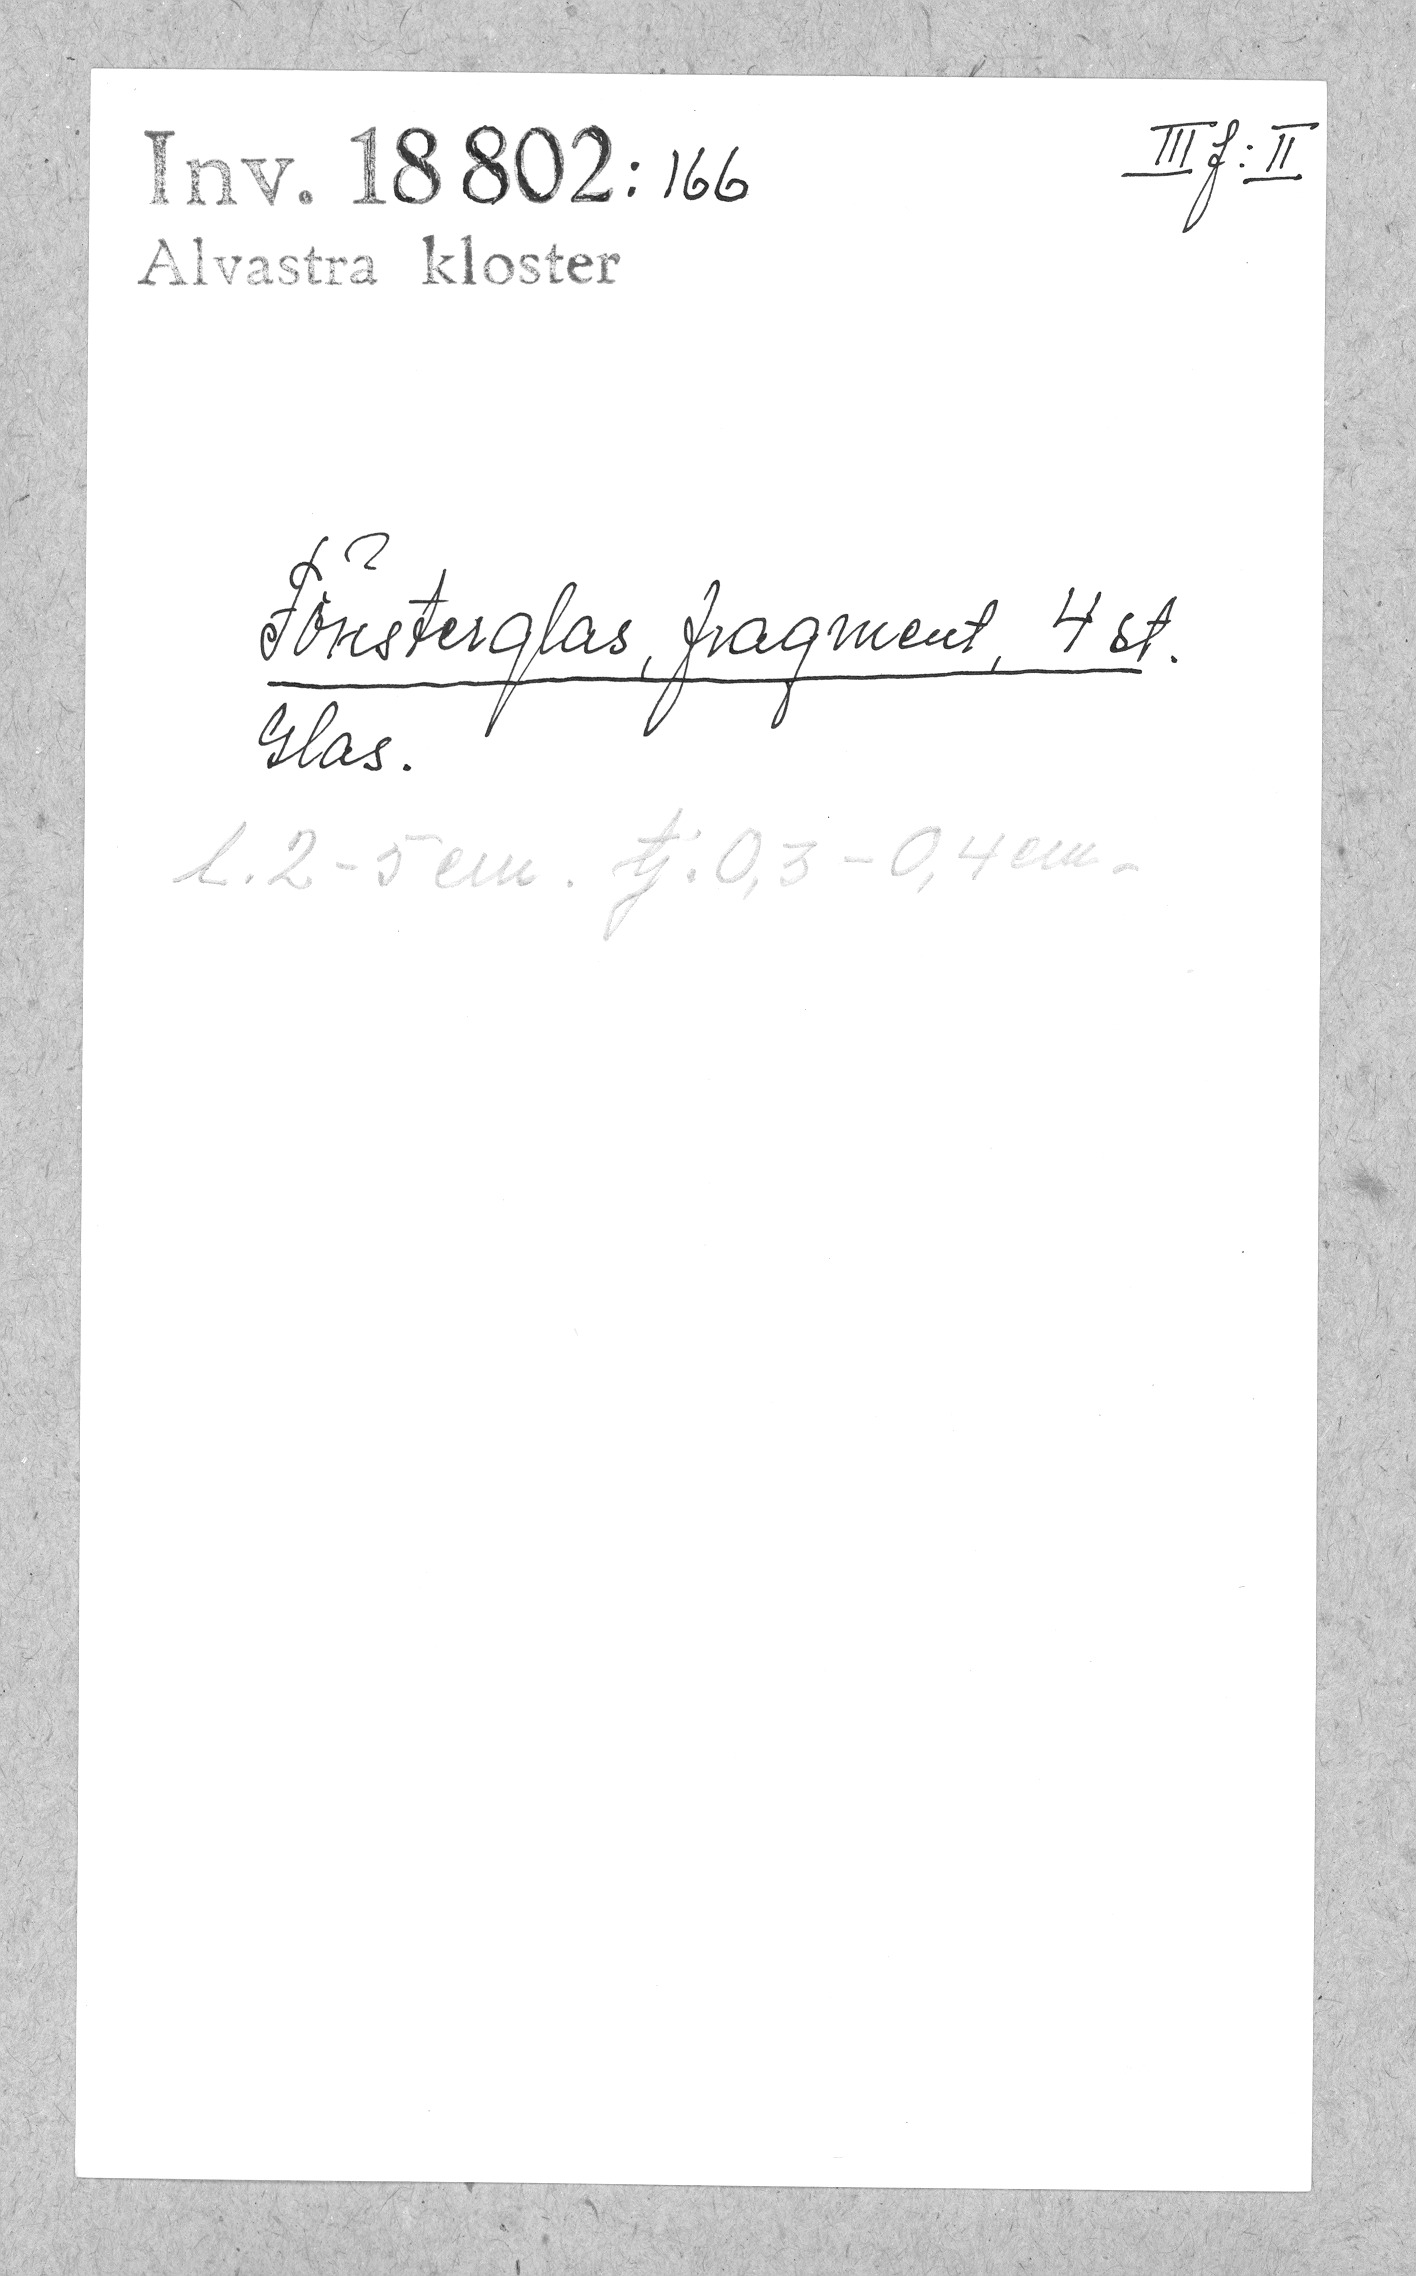 Inv. 18 802:166
III f:II
Alvastra kloster
Fönsterglas, fragment, 4 st.
Glas.
L. 2-5 cm. tj. 0,3-0,4 cm.